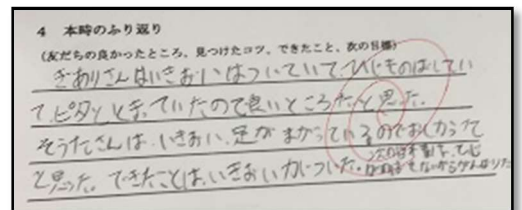 4 本時のふり返り
(友だちの良かったところ、見つけたコツ、できたこと、次の目標)
きありさんはいきおいはついていて、ひじものばしてい
て、ピタッととまっていたので良いところだと思った。
そうたさんは、いきおい、足がまがっているのでおしかったて
と思った。できたことは、いきおいがついた。
次の目標